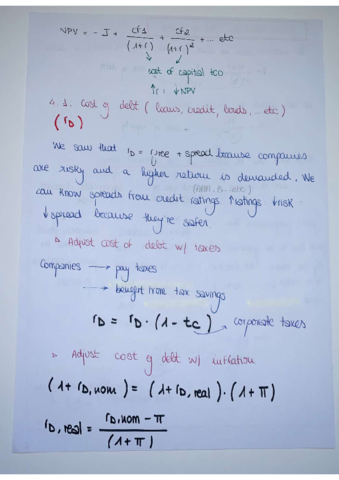 NPV = - I + cf1/(1+r) + cf2/(1+r)² + ... etc
cost of capital
↑r : ↓NPV
4.1. Cost of debt (loans, credit, bonds ... etc)
(rD)
We saw that rD = rfree + spread because companies
are risky and a higher return is demanded. We
can know spreads from credit ratings ↑ratings ↓risk
↓spread because they're safer
Adjust cost of debt w/ taxes
Companies → pay taxes
→ benefit from tax savings
rD = rD · (1 - tc) → corporate taxes
Adjust cost of debt w/ inflation
(1 + rD, nom) = (1 + rD, real) · (1 + π)
rD, real = rD, nom - π / (1 + π)